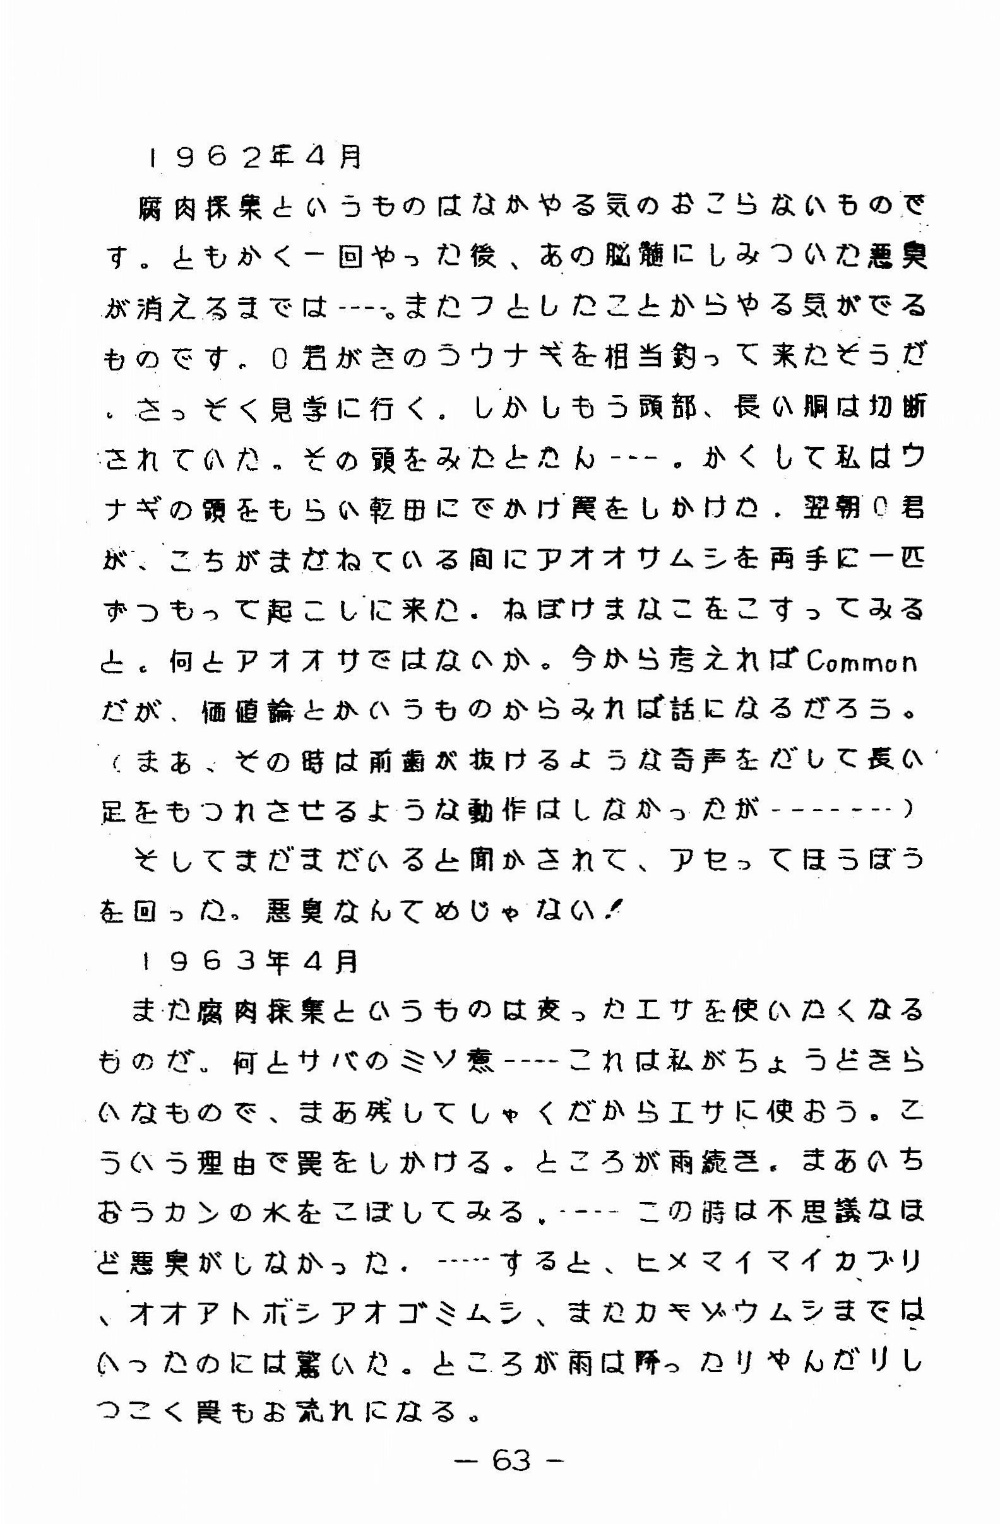 1962年4月
腐肉採集というものはなかやる気のおこらないもので
す。ともかく一回やった後、あの脳髄にしみついた悪臭
が消えるまでは----。またフとしたことからやる気がでる
ものです。O君がきのうウナギを相当釣って来たそうだ
。さっそく見学に行く。しかしもう頭部、長い胴は切断
されていた。その頭をみたとたん---。かくして私はウ
ナギの頭をもらい乾田にでかけ罠をしかけた。翌朝O君
が、こちがまだねている間にアオオサムシを両手に一匹
ずつもって起こしに来た。ねぼけまなこをこすってみる
と。何とアオオサではないか。今から考えればCommon
だが、価値論とかいうものからみれば話になるだろう。
(まあ、その時は前歯が抜けるような奇声をだして長い
足をもつれさせるような動作はしなかったが-------)
そしてまだまだいると聞かされて、アセってほうぼう
を回った。悪臭なんてめじゃない!
1963年4月
また腐肉採集というものは変ったエサを使いたくなる
ものだ。何とサバのミソ煮----これは私がちょうどきら
いなもので、まあ残してしゃくだからエサに使おう。こ
ういう理由で罠をしかける。ところが雨続き。まあいち
おうカンの水をこぼしてみる。----この時は不思議なほ
ど悪臭がしなかった。-----すると、ヒメマイマイカブリ
、オオアトボシアオゴミムシ、またカモゾウムシまでは
いったのには驚いた。ところが雨は降ったりやんだりし
つこく罠もお流れになる。
— 63 —